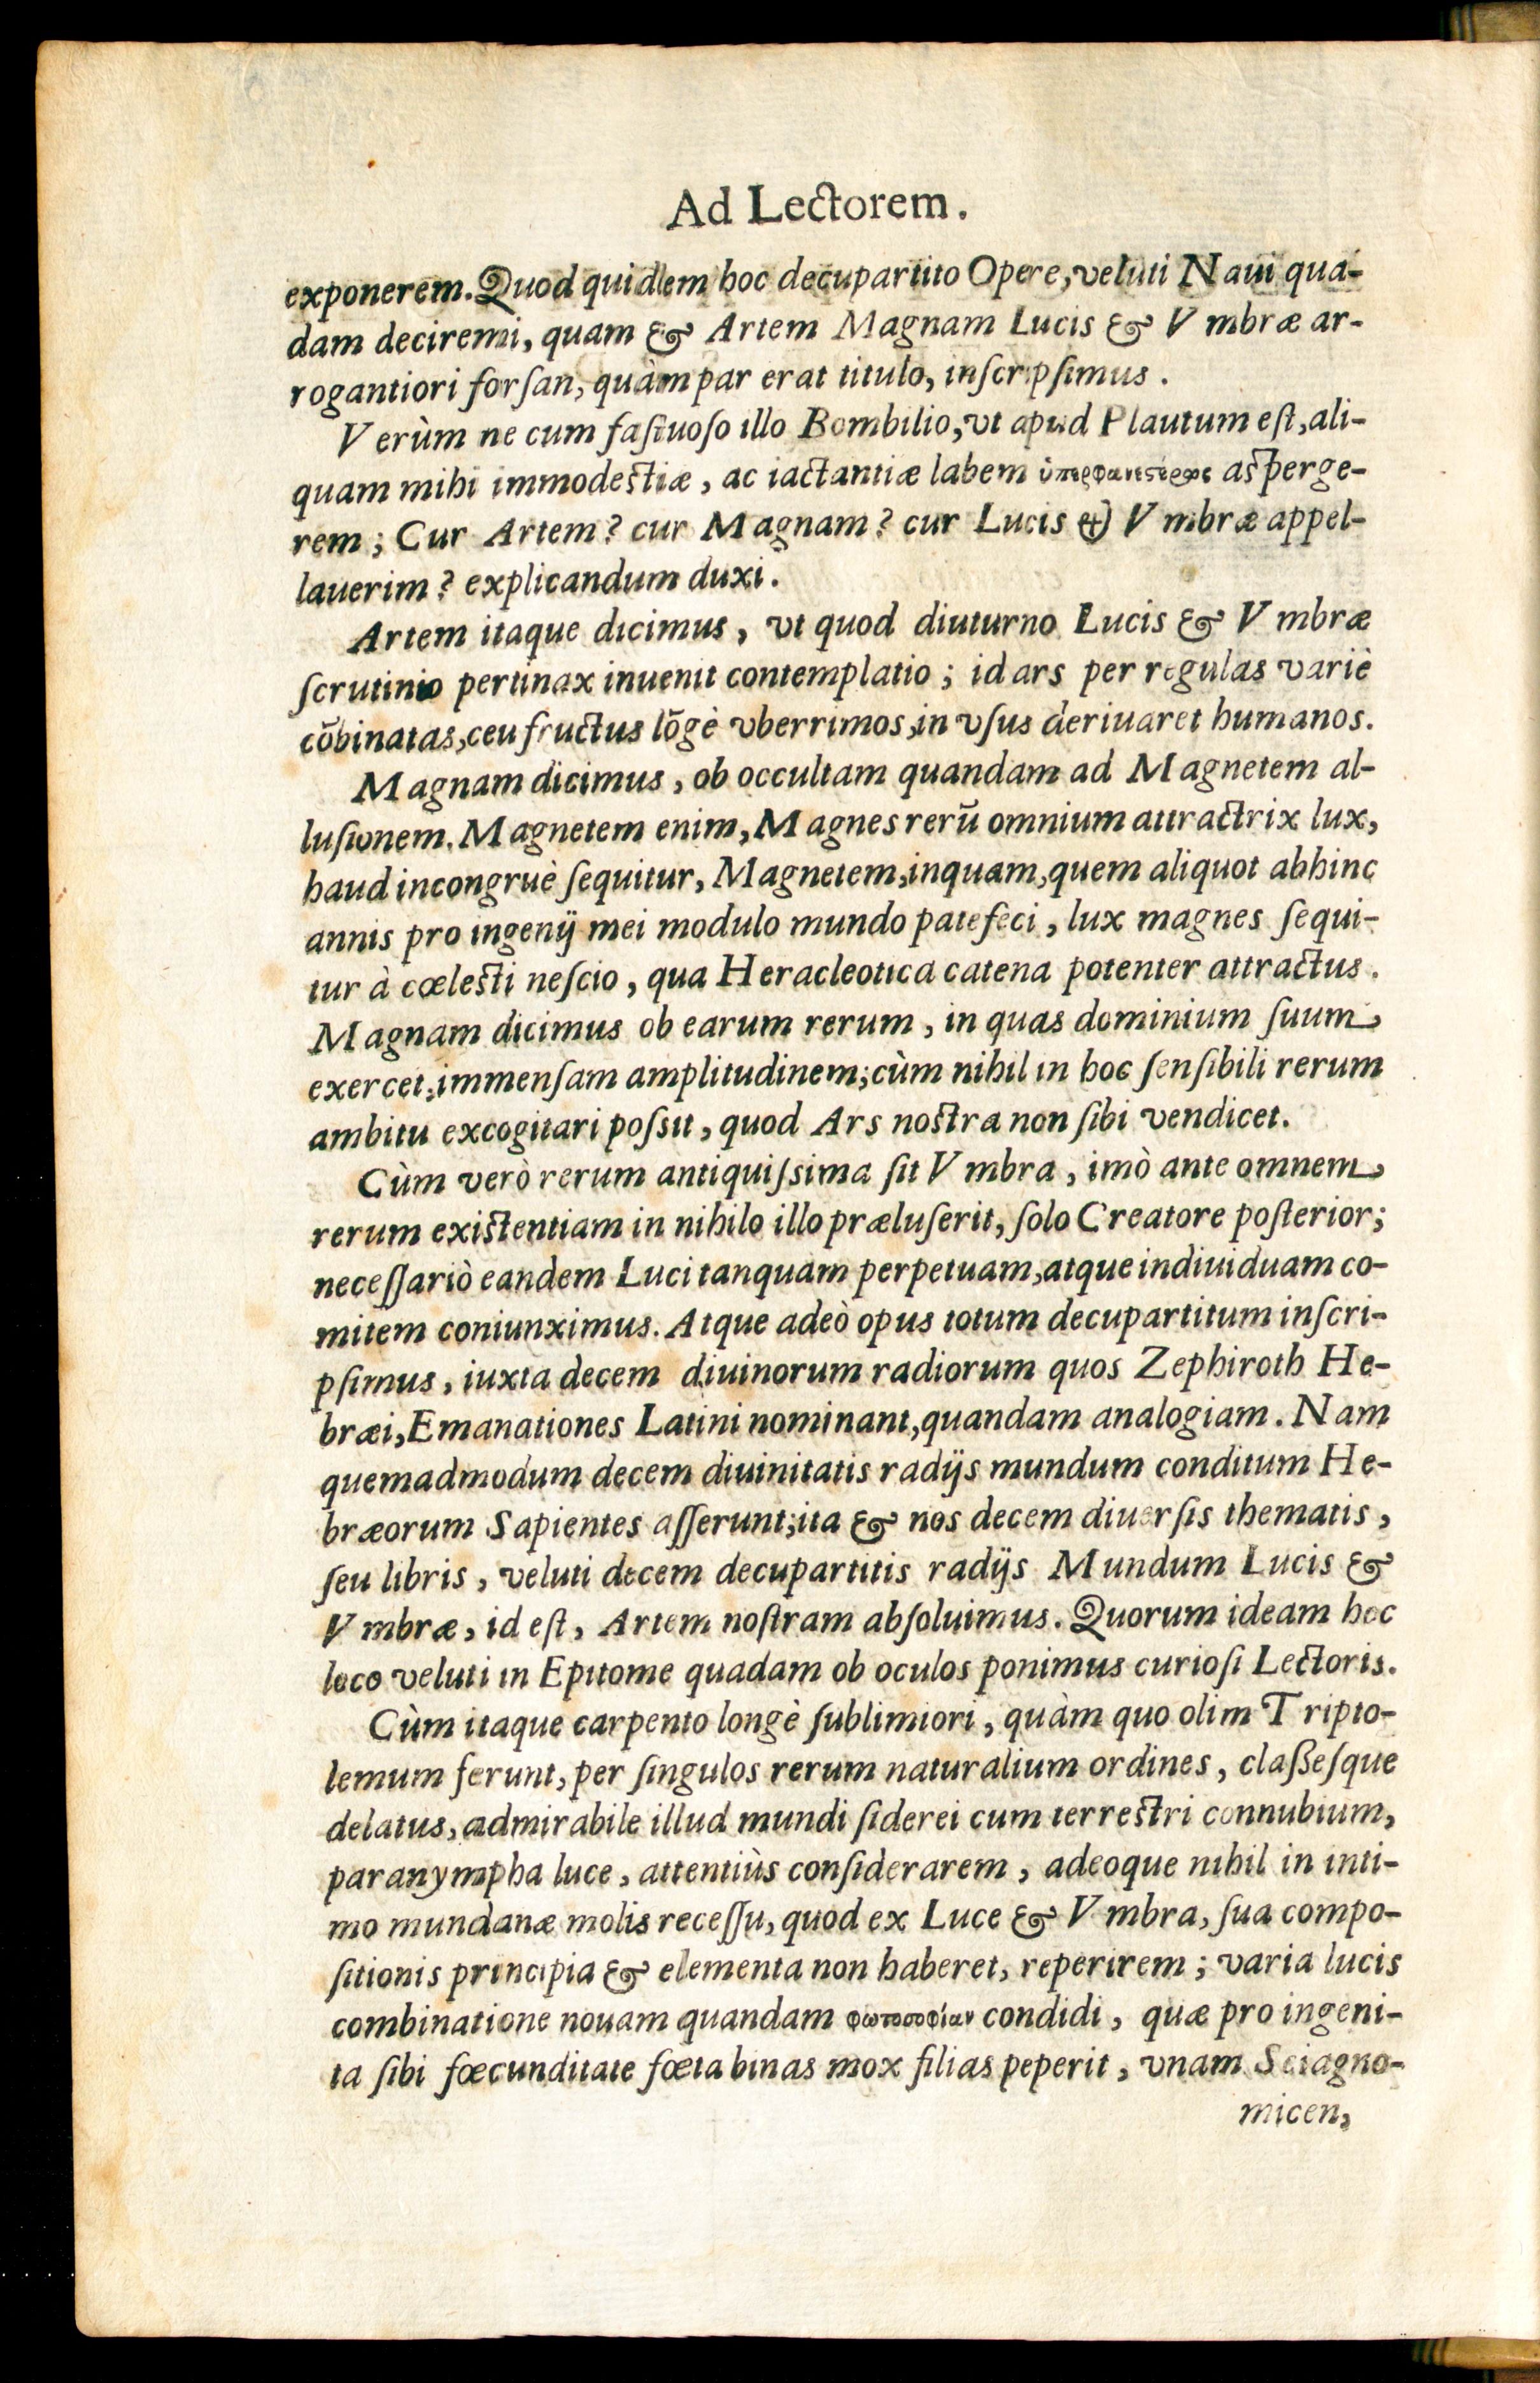 Ad Lectorem.
exponerem. Quod quidem hoc decupartito Opere, veluti Naui quá-
dam deciremi, quam & Artem Magnam Lucis & Vmbræ ar-
rogantiori forſan, quàm par erat titulo, inſcripſimus.
Verùm ne cum faſtuoſo illo Bombilio, vt apud Plautum eſt, ali-
quam mihi immodeſtiæ, ac iactantiæ labem aſperge-
rem; Cur Artem? cur Magnam? cur Lucis & Vmbræ appel-
lauerim? explicandum duxi.
Artem itaque dicimus, vt quod diuturno Lucis & Vmbræ
ſcrutinio pertinax inuenit contemplatio; id ars per regulas variè
cõbinatas, ceu fructus lõgè vberrimos, in vſus deriuaret humanos.
Magnam dicimus, ob occultam quandam ad Magnetem al-
luſionem. Magnetem enim, Magnes rerũ omnium attractrix lux,
haud incongruè ſequitur, Magnetem, inquam, quem aliquot abhinc
annis pro ingenij mei modulo mundo patefeci, lux magnes ſequi-
tur à cœleſti neſcio, qua Heracleotica catena potenter attractus.
Magnam dicimus ob earum rerum, in quas dominium ſuum
exercet, immenſam amplitudinem; cùm nihil in hoc ſenſibili rerum
ambitu excogitari poſsit, quod Ars noſtra non ſibi vendicet.
Cùm verò rerum antiquiſsima ſit Vmbra, imò ante omnem
rerum exiſtentiam in nihilo illo præluſerit, ſolo Creatore poſterior;
neceſſariò eandem Luci tanquam perpetuam, atque indiuiduam co-
mitem coniunximus. Atque adeò opus totum decupartitum inſcri-
pſimus, iuxta decem diuinorum radiorum quos Zephiroth He-
bræi, Emanationes Latini nominant, quandam analogiam. Nam
quemadmodum decem diuinitatis radijs mundum conditum He-
bræorum Sapientes aſſerunt; ita & nos decem diuerſis thematis,
ſeu libris, veluti decem decupartitis radijs Mundum Lucis &
Vmbræ, id eſt, Artem noſtram abſoluimus. Quorum ideam hoc
loco veluti in Epitome quadam ob oculos ponimus curioſi Lectoris.
Cùm itaque carpento longè ſublimiori, quàm quo olim Tripto-
lemum ferunt, per ſingulos rerum naturalium ordines, claßeſque
delatus, admirabile illud mundi ſiderei cum terreſtri connubium,
paranympha luce, attentiùs conſiderarem, adeoque nihil in inti-
mo mundanæ molis receſſu, quod ex Luce & Vmbra, ſua compo-
ſitionis principia & elementa non haberet, reperirem; varia lucis
combinatione nouam quandam φωτοσοφίαν condidi, quæ pro ingeni-
ta ſibi fœcunditate fœta binas mox filias peperit, vnam Sciagno-
micen,